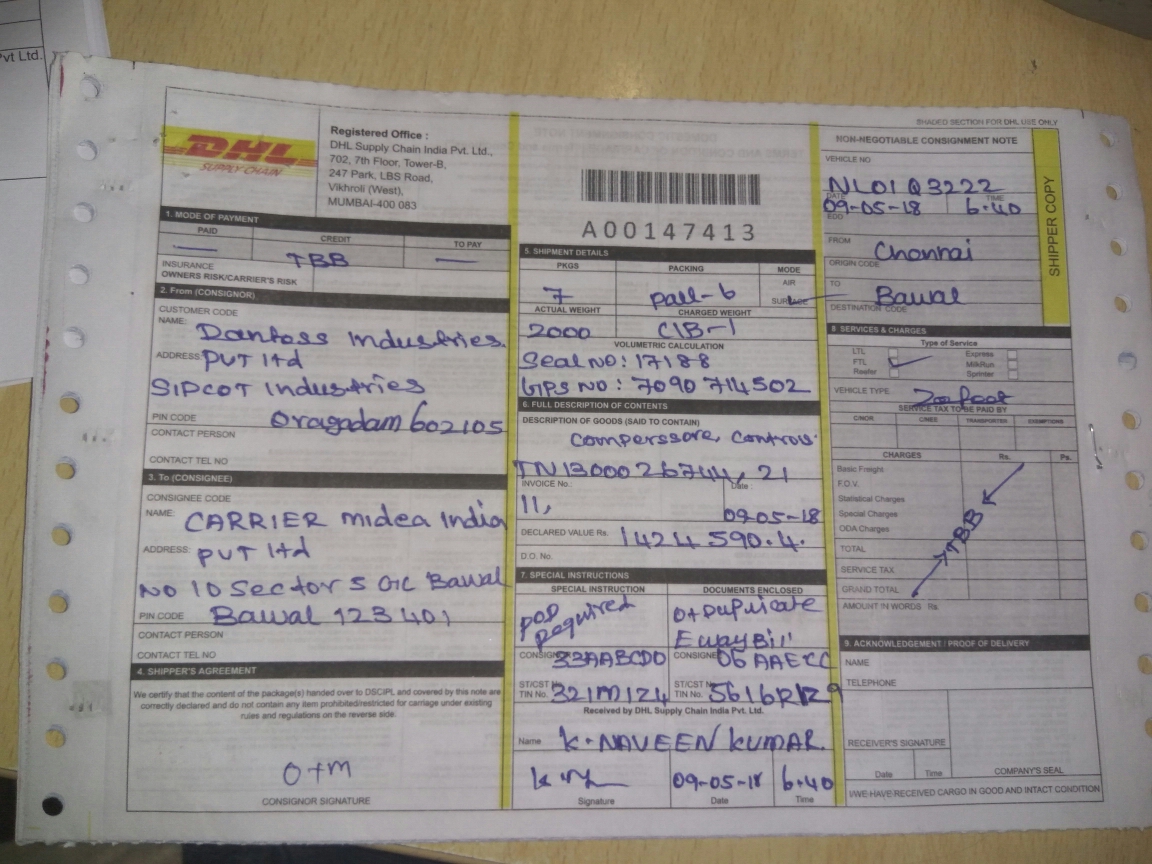 vt Ltd.
SHADED SECTION FOR DHL USE ONLY
DHL
SUPPLY CHAIN
Registered Office :
DHL Supply Chain India Pvt. Ltd.,
702, 7th Floor, Tower-B,
247 Park, LBS Road,
Vikhroli (West),
MUMBAI-400 083
1. MODE OF PAYMENT
PAID CREDIT TO PAY
— TBB —
INSURANCE
OWNERS RISK/CARRIER'S RISK
2. From (CONSIGNOR)
CUSTOMER CODE
NAME: Danfoss Industries.
ADDRESS: PVT ltd
SIPCOT Industries
PIN CODE Oragadam 602105
CONTACT PERSON
CONTACT TEL NO
3. To (CONSIGNEE)
CONSIGNEE CODE
NAME: CARRIER midea India
ADDRESS: PVT ltd
NO 10 Sector 5 GC Bawal
PIN CODE Bawal 123401
CONTACT PERSON
CONTACT TEL NO
4. SHIPPER'S AGREEMENT
We certify that the content of the package(s) handed over to DSCIPL and covered by this note are
correctly declared and do not contain any item prohibited/restricted for carriage under existing
rules and regulations on the reverse side.
O+M
CONSIGNOR SIGNATURE
A00147413
5. SHIPMENT DETAILS
PKGS PACKING MODE
7 pall-6 AIR
SURFACE
ACTUAL WEIGHT CHARGED WEIGHT
2000 C/B-1
VOLUMETRIC CALCULATION
Seal NO: 17188
GPS NO: 7090714502
6. FULL DESCRIPTION OF CONTENTS
DESCRIPTION OF GOODS (SAID TO CONTAIN)
Comperssore, Controls
TN13000 26744, 21
INVOICE No.: Date :
11, 09-05-18
DECLARED VALUE Rs. 1424590.4.
D.O. No.
7. SPECIAL INSTRUCTIONS
SPECIAL INSTRUCTION DOCUMENTS ENCLOSED
POD Required O+Duplicate
Eway Bill
CONSIGNOR 33AABCD0 CONSIGNEE 06 AAECC
ST/CST No. ST/CST No.
TIN No. 321M124 TIN No. 5616R1Z9
Received by DHL Supply Chain India Pvt. Ltd.
Name K. NAVEEN KUMAR.
09-05-18 6.40
Signature Date Time
NON-NEGOTIABLE CONSIGNMENT NOTE
SHIPPER COPY
VEHICLE NO
NL01Q3222
DATE TIME
09-05-18 6.40
EDD
FROM Chennai
ORIGIN CODE
TO Bawal
DESTINATION CODE
8 SERVICES & CHARGES
Type of Service
LTL Express
FTL MilkRun
Reefer Sprinter
VEHICLE TYPE
SERVICE TAX TO BE PAID BY
C/NOR C/NEE TRANSPORTER EXEMPTIONS
CHARGES Rs. Ps.
Basic Freight
F.O.V.
Statistical Charges
Special Charges
ODA Charges
TBB
TOTAL
SERVICE TAX
GRAND TOTAL
AMOUNT IN WORDS Rs.
9. ACKNOWLEDGEMENT / PROOF OF DELIVERY
NAME
TELEPHONE
RECEIVER'S SIGNATURE
Date Time COMPANY'S SEAL
I/WE HAVE RECEIVED CARGO IN GOOD AND INTACT CONDITION